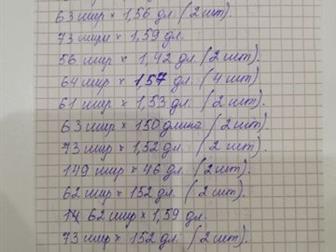 63 шир × 1,56 дл. (2 шт).
73 шири × 1,59 дл.
56 шир × 1,42 дл. (2 шт).
64 шир × 1,57 дл. (4 шт)
61 шир × 1,53 дл. (2 шт).
63 шир × 150 длина (2 шт).
73 шир × 1,52 дл. (2 шт).
149 шир × 46 дл. (2 шт).
62 шир × 152 дл. (2 шт).
62 шир × 1,59 дл.
73 шир × 152 дл. (2 шт).